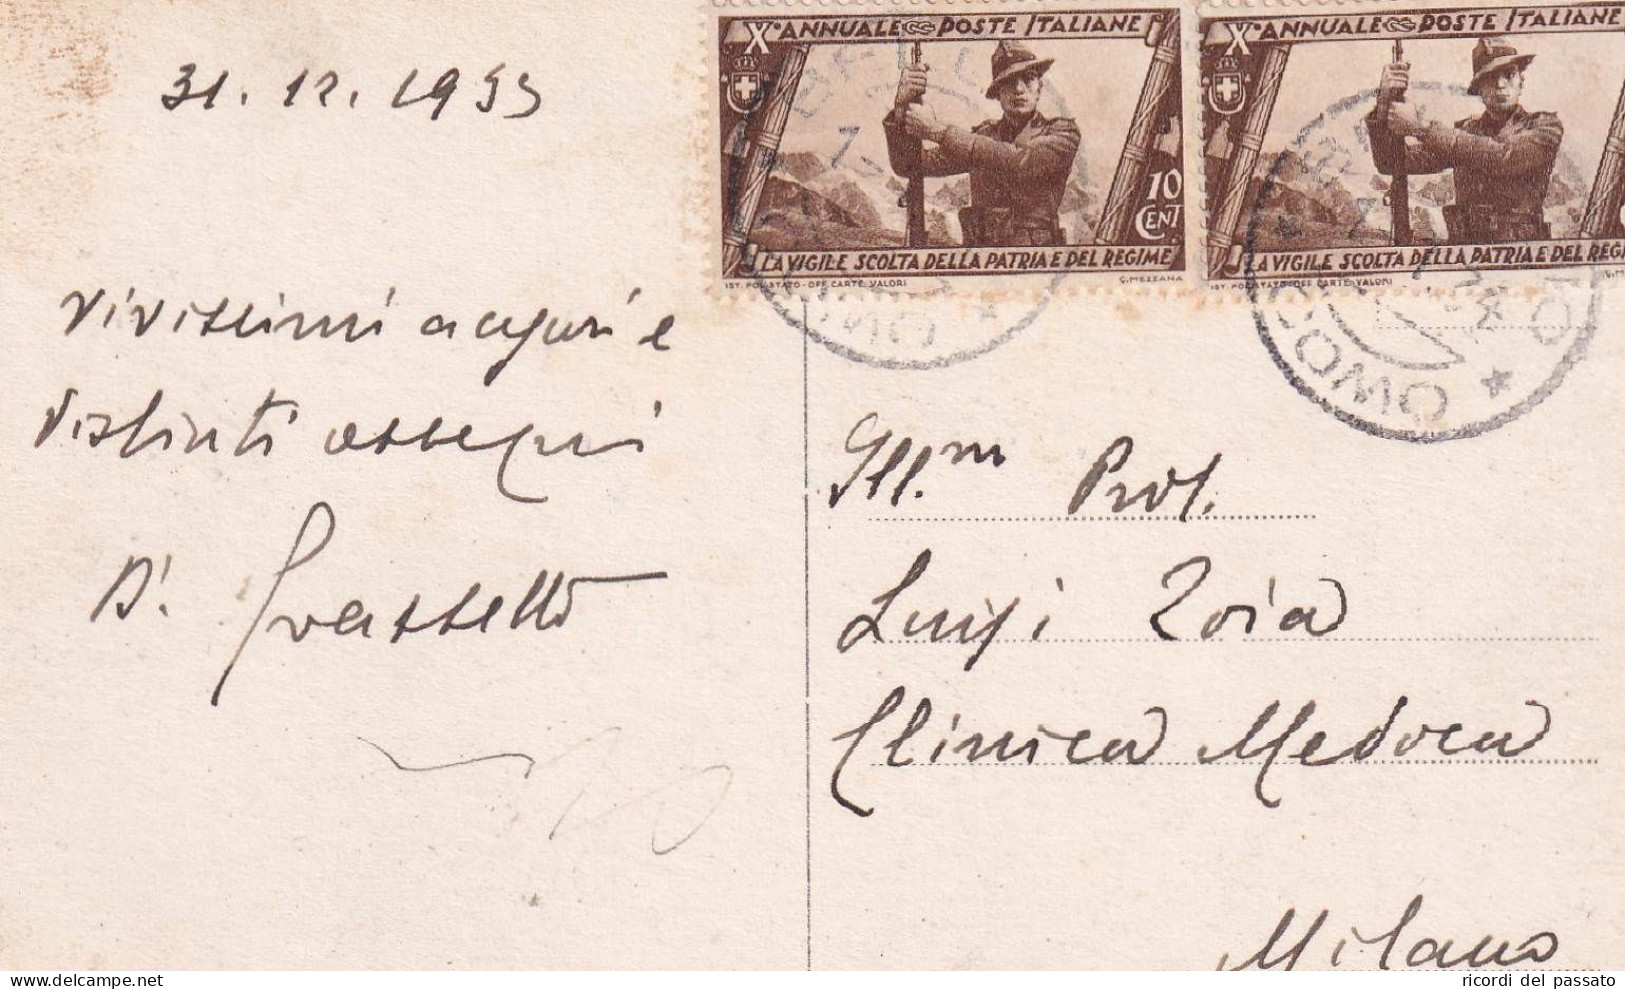 31. 12. 1933
Vivissimi auguri e
distinti ossequi
D.
X° ANNUALE POSTE ITALIANE
10
CENT
LA VIGILE SCOLTA DELLA PATRIA E DEL REGIME
IST. POL. STATO - OFF. CARTE-VALORI
C. MEZZANA
X° ANNUALE POSTE ITALIANE
LA VIGILE SCOLTA DELLA PATRIA E DEL REGIME
IST. POL. STATO - OFF. CARTE-VALORI
COMO
Ill.m Prof.
Luigi Zoia
Clinica Medica
Milano
ricordi del passato